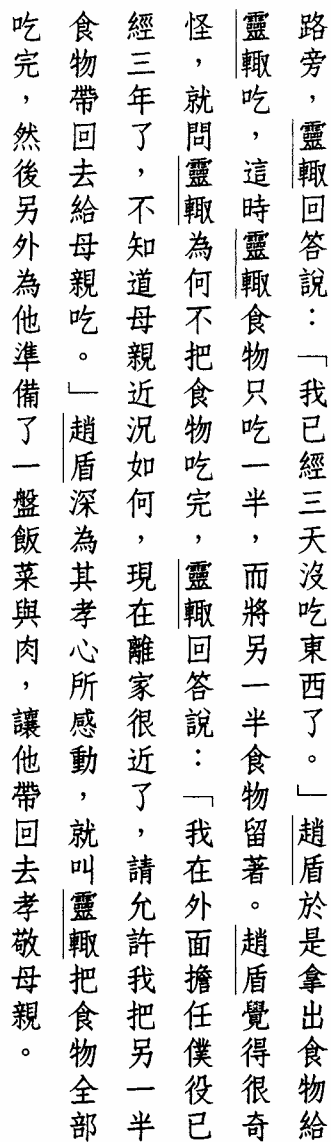 路旁，靈輒回答說：「我已經三天沒吃東西了。」趙盾於是拿出食物給
靈輒吃，這時靈輒食物只吃一半，而將另一半食物留著。趙盾覺得很奇
怪，就問靈輒為何不把食物吃完，靈輒回答說：「我在外面擔任僕役已
經三年了，不知道母親近況如何，現在離家很近了，請允許我把另一半
食物帶回去給母親吃。」趙盾深為其孝心所感動，就叫靈輒把食物全部
吃完，然後另外為他準備了一盤飯菜與肉，讓他帶回去孝敬母親。